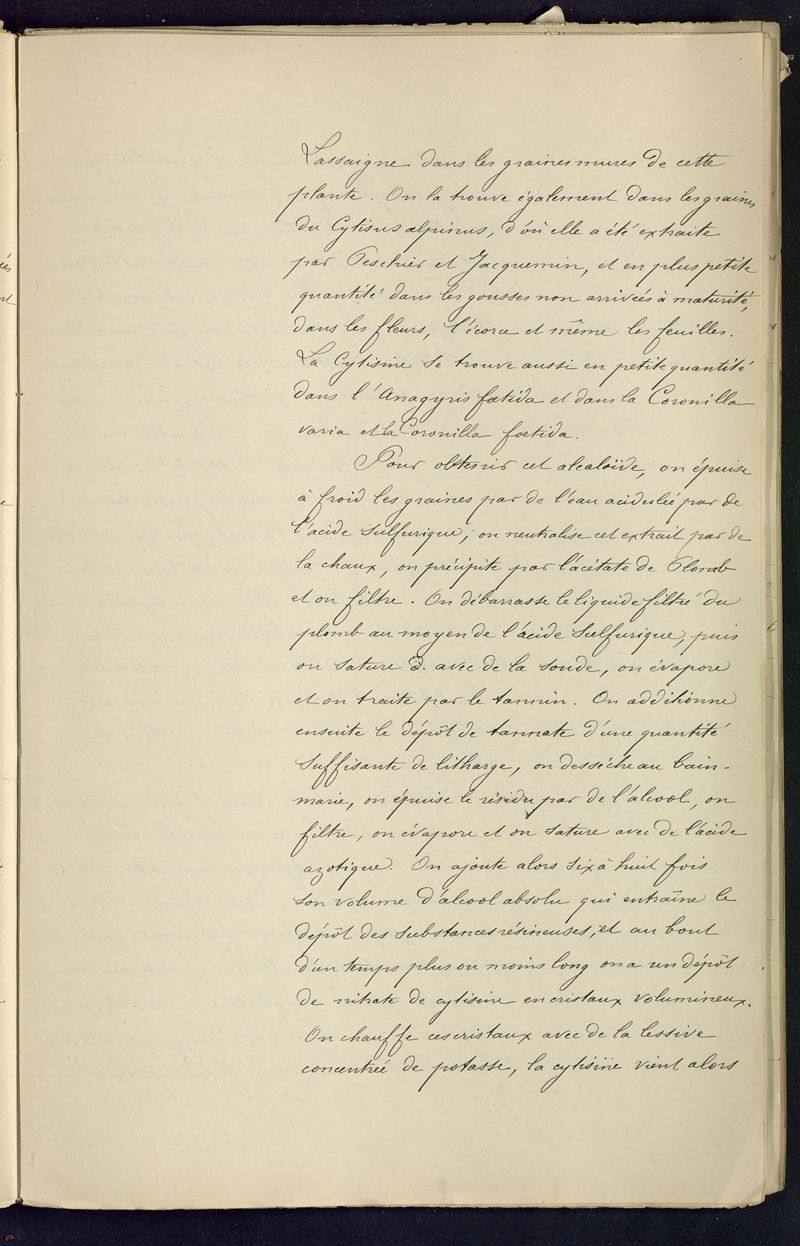 Lassaigne dans les graines mures de cette
plante. On la trouve également dans les graines
du Cytisus alpinus, d'où elle a été extraite
par Peschier et Jacquemin, et en plus petite
quantité dans les gousses non arrivées à maturité,
dans les fleurs, l'écorce et même les feuilles.
La Cytisine se trouve aussi en petite quantité
dans l'Anagyris fœtida et dans la Coronilla
varia et la Coronilla foetida.
Pour obtenir cet alcaloïde, on épuise
à froid les graines par de l'eau acidulée par de
l'acide sulfurique; on neutralise cet extrait par de
la chaux, on précipite par l'acétate de Plomb
et on filtre. On débarrasse le liquide filtré du
plomb au moyen de l'acide Sulfurique, puis
on sature avec de la soude, on évapore
et on traite par le tannin. On additionne
ensuite le dépôt de tannate d'une quantité
suffisante de litharge, on dessèche au bain-
marie, on épuise le résidu par de l'alcool, on
filtre, on évapore et on sature avec de l'acide
azotique. On ajoute alors six à huit fois
son volume d'alcool absolu qui entraîne le
dépôt des substances résineuses, et au bout
d'un temps plus ou moins long on a un dépôt
de nitrate de cytisine en cristaux volumineux.
On chauffe ces cristaux avec de la lessive
concentrée de potasse, la cytisine vient alors